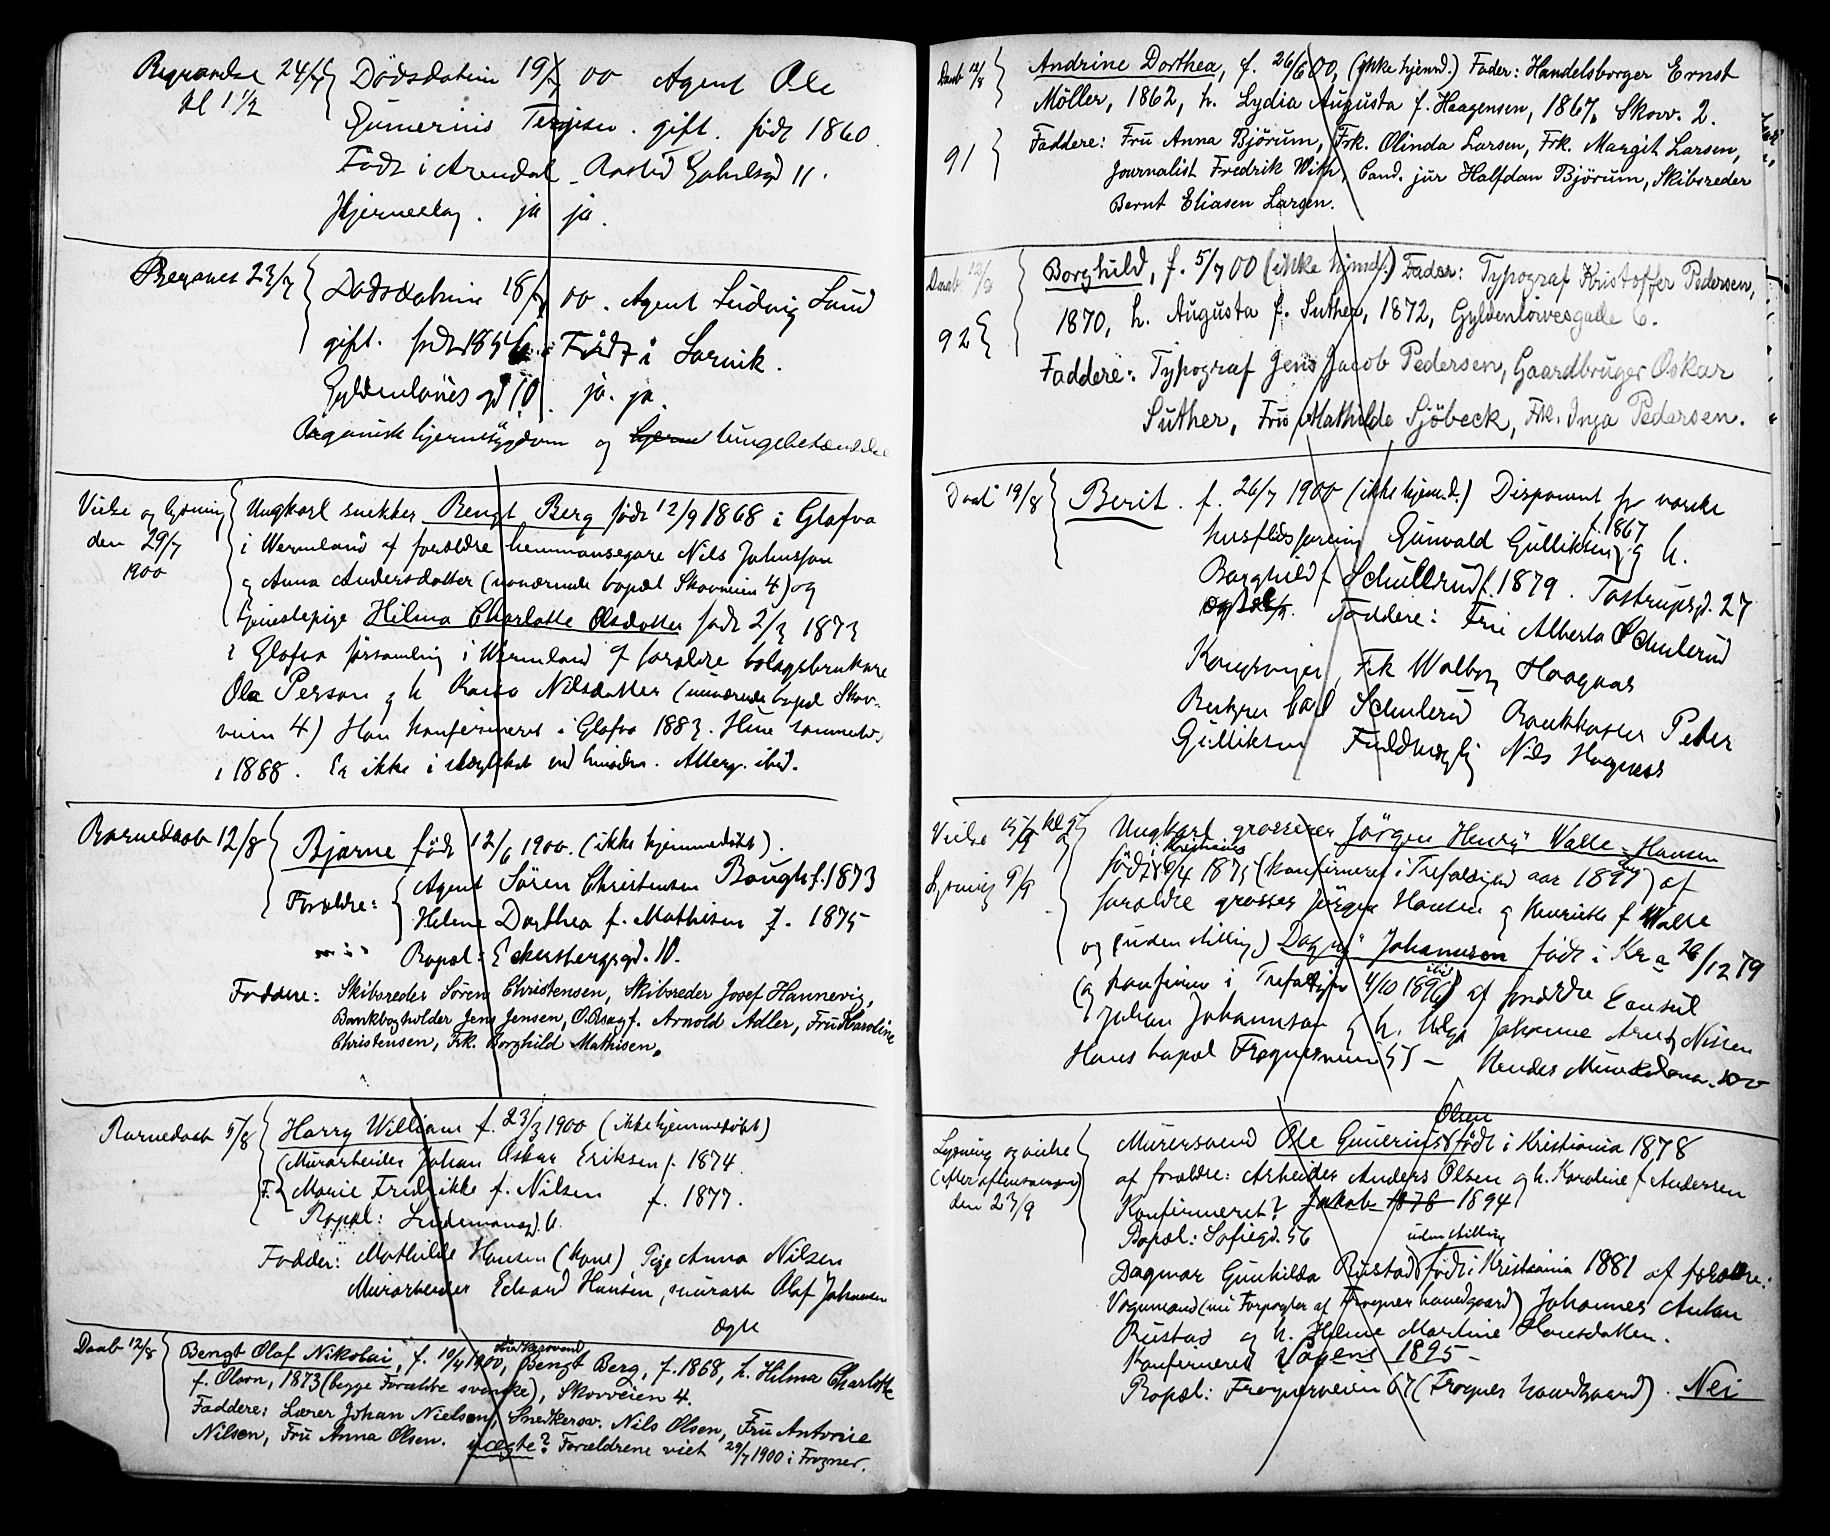 Begravelse 24/7 Dødsdatum 19/7 00 Agent Ole
kl 1 1/2 Gunerius Terjesen. gift. født 1860
Født i Arendal. Bosted Gabelsgd 11.
Hjerneslag. ja ja.
Begravet 23/7 Dødsdatum 18/7 00. Agent Ludvig Lund
gift. født 1856. Født i Larvik.
Gyldenløves gd 10. ja. ja.
Organisk hjernesygdom og hjerne lungebetændelse
Vielse og lysning Ungkarl snekker Bengt Berg født 12/9 1868 i Glafva
den 29/7 i Wermland af forældre hemmansegare Nils Johnsson
1900 og Anna Andersdatter (nuværende bopæl Skovveien 4) og
tjenestepige Hilma Charlotte Olsdatter født 2/3 1873
i Glafva församling i Wermland af forældre bolagsbrukare
Ola Person og h. Karin Nilsdatter (nuværende bopæl Skov-
veien 4) Han konfirmeret i Glafva 1883. Hun sammested
i 1888. Er ikke i slægtskab ved hinanden. Atterg. ibid.
Barnedaab 12/8 Bjarne født 12/6 1900. (ikke hjemmedøbt).
Forældre: Agent Sören Christensen Bough f. 1873
Helene Dorthea f. Mathisen f. 1875
Bopæl: Eckersbergsgd. 10.
Faddere: Skibsreder Sören Christensen, Skibsreder Josef Hannevig,
Bankbogholder Jens Jensen, O.Rsagf. Arnold Adler, Fru Karoline
Christensen, Frk. Borghild Mathisen.
Barnedaab 5/8 Harry William f. 23/3 1900 (ikke hjemmedøbt)
F. Murarbeider Johan Oskar Eriksen f. 1874
Marie Fredrikke f. Nilsen f. 1877.
Bopæl: Lindemansgd. 6.
Fadder: Mathilde Hansen (kone) Pige Anna Nilsen
Murarbeider Edvard Hansen, murarb Olaf Johansen
ægte
Daab 12/8 Bengt Olaf Nikolai, f. 10/4 1900, Snedkersvend Bengt Berg, f. 1868, h. Hilma Charlotte
f. Olson, 1873 (begge Forældre svenske), Skovveien 4.
Faddere: Lærer Johan Nielsen, Snedkersv. Nils Olsen, Fru Antonie
Nilsen, Fru Anna Olsen. uægte? Forældrene viet 29/7 1900 i Frogner.
Daab 12/8 Andrine Dorthea, f. 26/6 00, (ikke hjemd.) Fader: Handelsborger Ernst
Möller, 1862, h. Lydia Augusta f. Haagensen, 1867, Skovv. 2.
91 Faddere: Fru Anna Bjørum, Frk. Olinda Larsen, Frk. Margit Larsen,
Journalist Fredrik With, Cand. jur Halfdan Bjørum, Skibsreder
Bernt Eliasen Larsen.
Daab 12/8 Borghild, f. 5/7 00 (ikke hjmd.) Fader: Typograf Kristoffer Pedersen,
1870, h. Augusta f. Suther, 1872, Gyldenlövesgade 6.
92 Faddere: Typograf Jens Jacob Pedersen, Gaardbruger Oskar
Suther, Fru Mathilde Sjöbeck, Frk. Inga Pedersen.
Daab 19/8 Berit. f. 26/7 1900 (ikke hjemd.) Disponent for norske
husflidsforening Gunvald Gulliksen f. 1867 og h.
Borghild f. Schulerud f. 1879. Tostrupsgd. 27
Faddere: Frue Alberta Schulerud
Kongsvinger, Frk Valborg Haagnæs
Carl Schulerud Bankkasser Peter
Gulliksen Nils Hagnæss
Vielse 15/9 kl 5 og Ungkarl grosserer Jörgen Henry Walle-Hansen
Lysning 9/9 född i Kristiania /4 1875 (konfirmeret i Trefoldighed aar 1891) af
forældre grosser Jörgen Hansen og Henriette f Walle
og (uden stilling) Dagny Johannson født i Kra 26/12 79
(og konfirm i Trefoldigh 4/10 1896 ibid) af forældre Consul
Julian Johannson og h. Helga Johanne Arndtz Nissen
Hans bopæl Frognerveien 55 – Hendes
Lysning og vielse Murersvend Ole Gunerius Olsen født i Kristiania 1878
(efter aftensangen) af forældre: Arbeider Anders Olsen og h. Karoline f Andersen
den 23/9 Konfirmeret? Jakob 1878 1894
Bopæl: Sofiegd. 56
uden stilling
Dagmar Gunhilda Rustad født i Kristiania 1881 af forældre:
Vognmand (nu Forpagter af Frogner hovedgaard) Johannes Anton
Rustad og h. Helene Martine Hansdatter.
Konfirmeret Vaagens 1895 –
Bopæl: Frognerveien 67 (Frogner hovedgaard). Nei